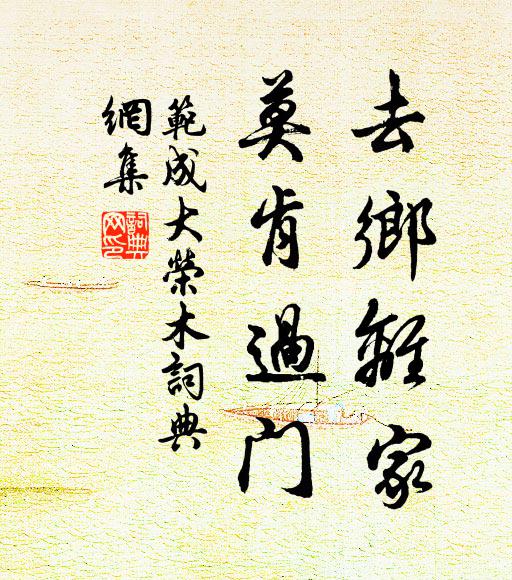 去鄉離家
莫肯過門
範成大榮木詞典
網集
詞典
网印